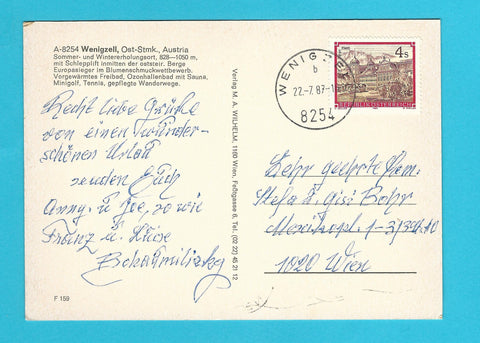 A-8254 Wenigzell, Ost-Stmk., Austria
Sommer- und Wintererholungsort, 828—1050 m,
mit Schlepplift inmitten der oststeir. Berge
Europasieger im Blumenschmuckwettbewerb.
Vorgewärmtes Freibad, Ozonhallenbad mit Sauna,
Minigolf, Tennis, gepflegte Wanderwege.
Recht liebe Grüße
von einem wunder-
schönen Urlaub
senden Euch
Anny u Joe, so wie
Franz u.
F 159
Verlag M. A. WILHELM, 1160 Wien, Tel. (02 22) 45 21 12
WENIGZELL
b
22.-7.87
8254
4 S
REPUBLIK ÖSTERREICH
Sehr geehrte Fam.
Stefa u. Gisi Bohr
1020 Wien